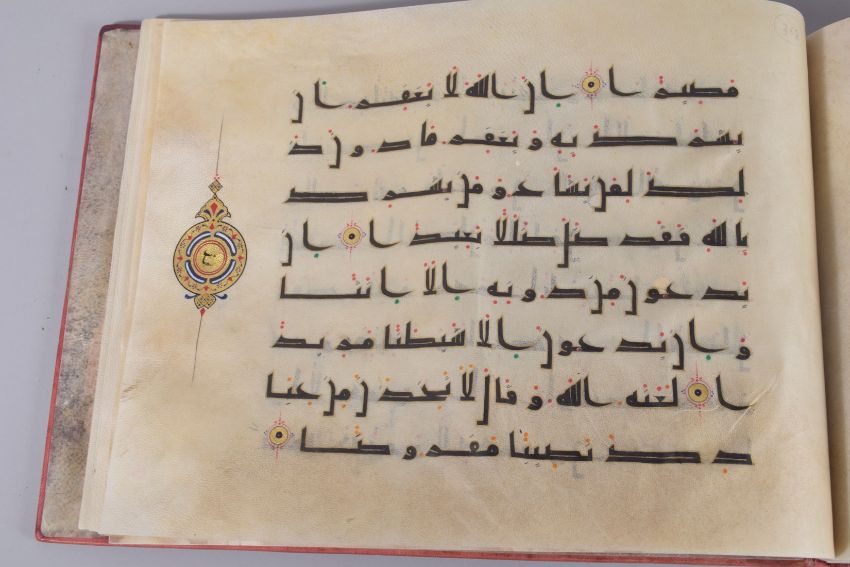 مصيرا ۝ ان الله لا يغفر ان
يشرك به و يغفر ما دون ذ
لك لمن يشا و من يشرك
بالله فقد ضل ضللا بعيدا ۝ ان
يدعون من دونه الا انثا
و ان يدعون الا شيطنا مريد
ا ۝ لعنه الله و قال لاتخذن من عبا
دك نصيبا مفروضا ۝